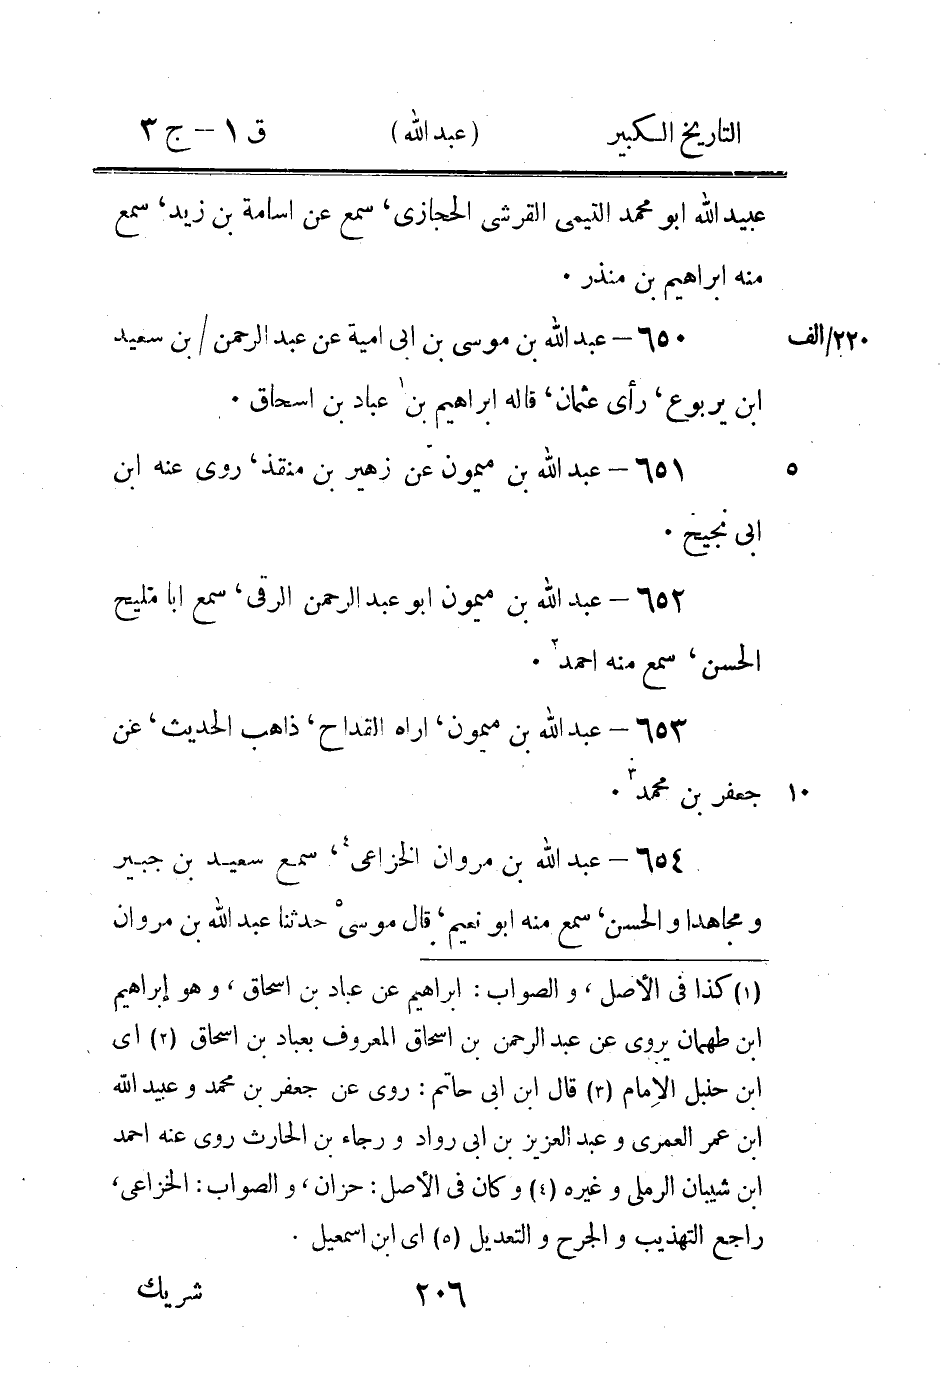 التاريخ الكبير (عبدالله) ق ١ – ج ٣
عبيدالله ابو محمد التيمى القرشى الحجازى، سمع عن اسامة بن زيد، سمع
منه ابراهيم بن منذر ٠
٢٢٠/الف ٦٥٠ – عبدالله بن موسى بن ابى امية عن عبدالرحمن / بن سعيد
ابن يربوع، رأى عثمان، قاله ابراهيم بن ١ عباد بن اسحاق ٠
٥ ٦٥١ – عبدالله بن ميمون عن زهير بن منقذ، روى عنه ابن
ابى نجيح ٠
٦٥٢ – عبدالله بن ميمون ابو عبدالرحمن الرقى، سمع ابا مليح
الحسن، سمع منه احمد ٢ ٠
٦٥٣ – عبدالله بن ميمون، اراه القداح، ذاهب الحديث، عن
١٠ جعفر بن محمد ٣ ٠
٦٥٤ – عبدالله بن مروان الخزاعى ٤، سمع سعيد بن جبير
و مجاهدا و الحسن، سمع منه ابو نعيم، قال موسى ٥ حدثنا عبدالله بن مروان
(١) كذا فى الأصل، و الصواب : ابراهيم عن عباد بن اسحاق، و هو إبراهيم
ابن طهمان يروى عن عبد الرحمن بن اسحاق المعروف بعباد بن اسحاق (٢) اى
ابن حنبل الإمام (٣) قال ابن ابى حاتم : روى عن جعفر بن محمد و عبيد الله
ابن عمر العمرى و عبد العزيز بن ابى رواد و رجاء بن الحارث روى عنه احمد
ابن شيبان الرملى و غيره (٤) و كان فى الأصل : حزان، و الصواب : الخزاعى،
راجع التهذيب و الجرح و التعديل (٥) اى ابن اسمعيل ٠
٢٠٦ شريك